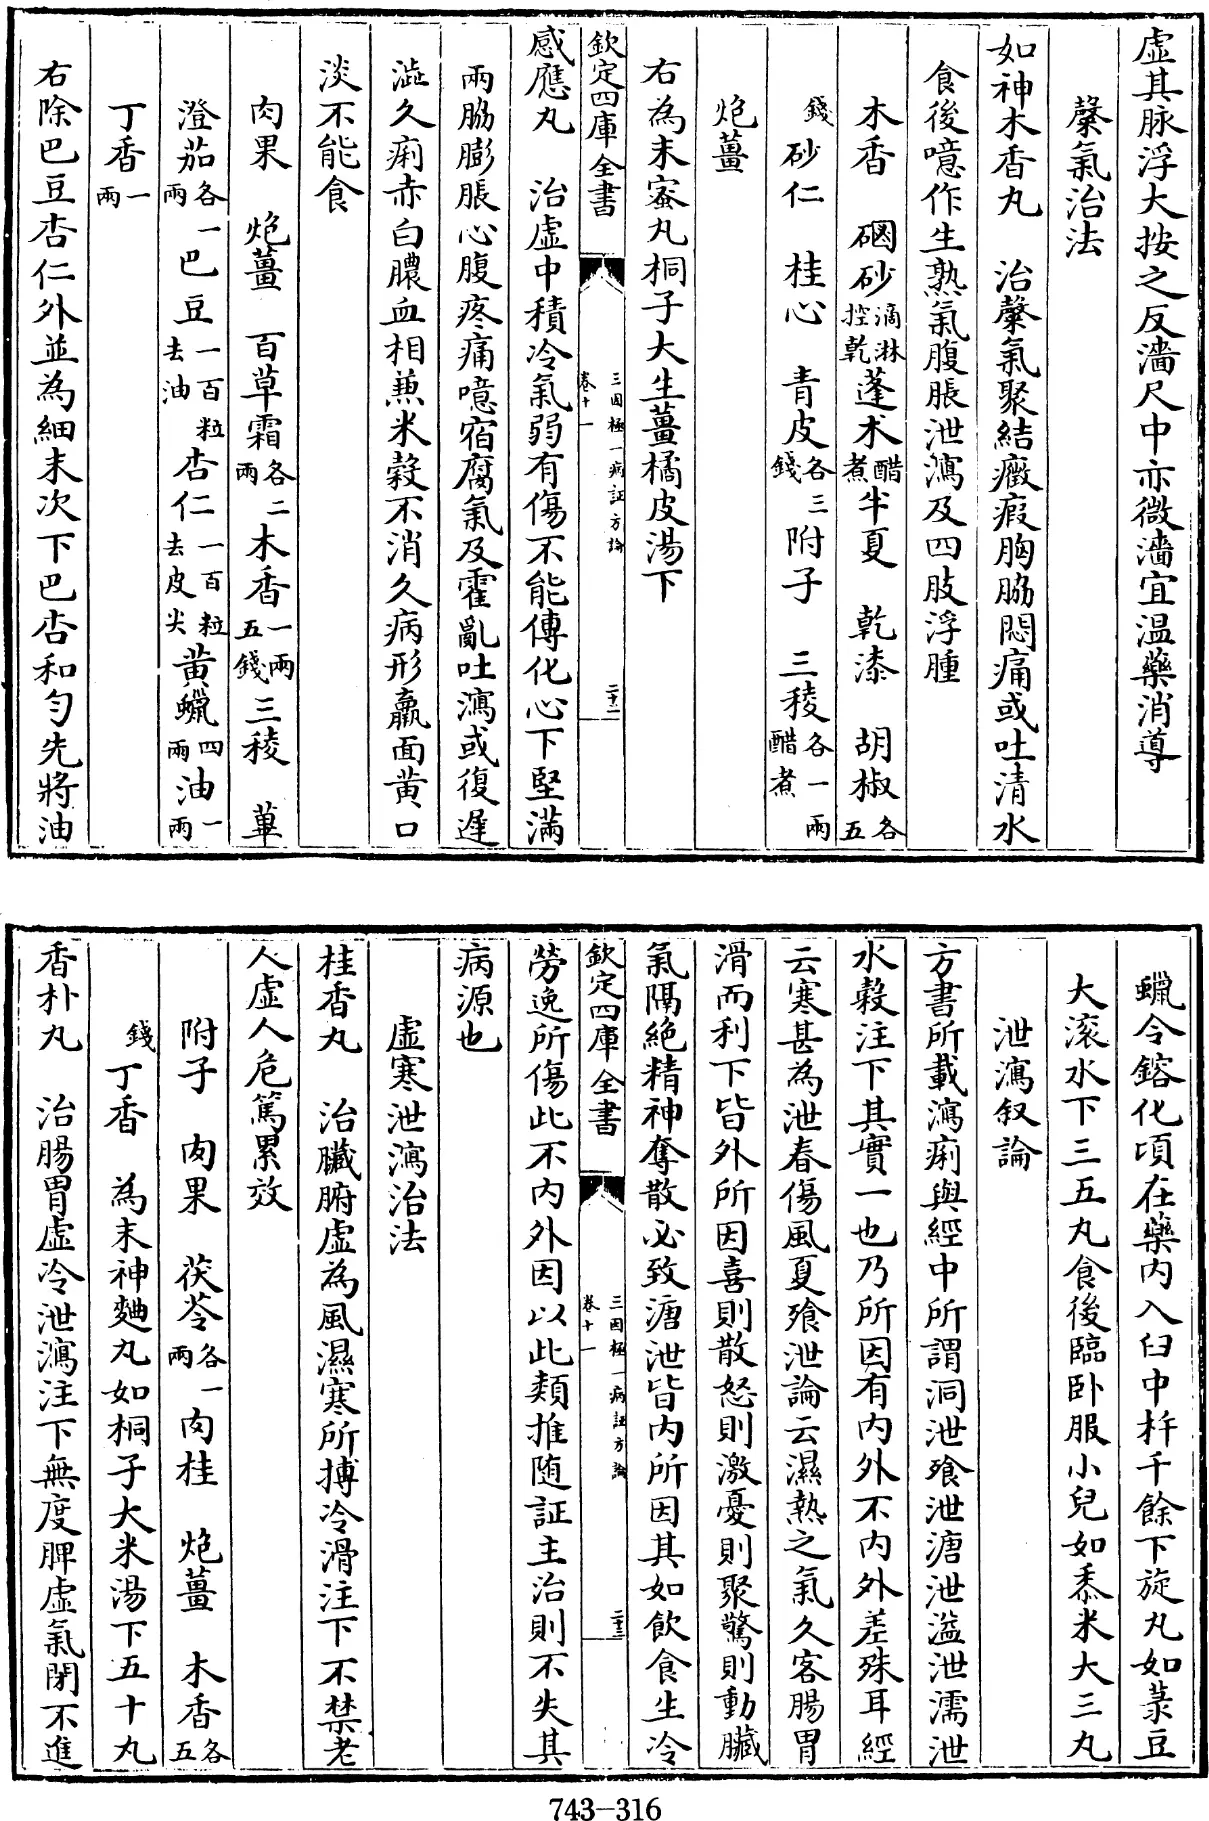 虚其脉浮大按之反濇尺中亦微濇宜温藥消導
䅽氣治法
如神木香丸　治䅽氣聚結癥瘕胸脇悶痛或吐清水
食後噫作生熟氣腹脹泄瀉及四肢浮腫
木香　硇砂滴淋控乾蓬术醋煮半夏　乾漆　胡椒各五
錢砂仁　桂心　青皮各三錢附子　三稜各一兩醋煮
炮薑
右為末蜜丸桐子大生薑橘皮湯下
欽定四庫全書　三因極一病証方論卷十一　二十二
感應丸　治虚中積冷氣弱有傷不能傳化心下堅滿
兩脇膨脹心腹疼痛噫宿腐氣及霍亂吐瀉或復遲
澁久痢赤白膿血相兼米穀不消久病形羸面黄口
淡不能食
肉果　炮薑　百草霜各二兩木香一兩五錢三稜　蓽
澄茄各一兩巴豆一百粒去油杏仁一百粒去皮尖黄蠟四兩油一兩
丁香一兩
右除巴豆杏仁外並為細末次下巴杏和勻先將油
蠟令鎔化頃在藥内入臼中杵千餘下旋丸如菉豆
大滚水下三五丸食後臨卧服小兒如黍米大三丸
泄瀉叙論
方書所載瀉痢與經中所謂洞泄飱泄溏泄溢泄濡泄
水穀注下其實一也乃所因有内外不内外差殊耳經
云寒甚為泄春傷風夏飱泄論云濕熱之氣久客腸胃
滑而利下皆外所因喜則散怒則激憂則聚驚則動臟
氣隔絶精神奪散必致溏泄皆内所因其如飲食生冷
欽定四庫全書　三因極一病証方論卷十一　二十三
勞逸所傷此不内外因以此類推随証主治則不失其
病源也
虚寒泄瀉治法
桂香丸　治臟腑虚為風濕寒所搏冷滑注下不禁老
人虚人危篤累效
附子　肉果　茯苓各一兩肉桂　炮薑　木香各五
錢丁香　為末神麯丸如桐子大米湯下五十丸
香朴丸　治腸胃虚冷泄瀉注下無度脾虚氣閉不進
743-316